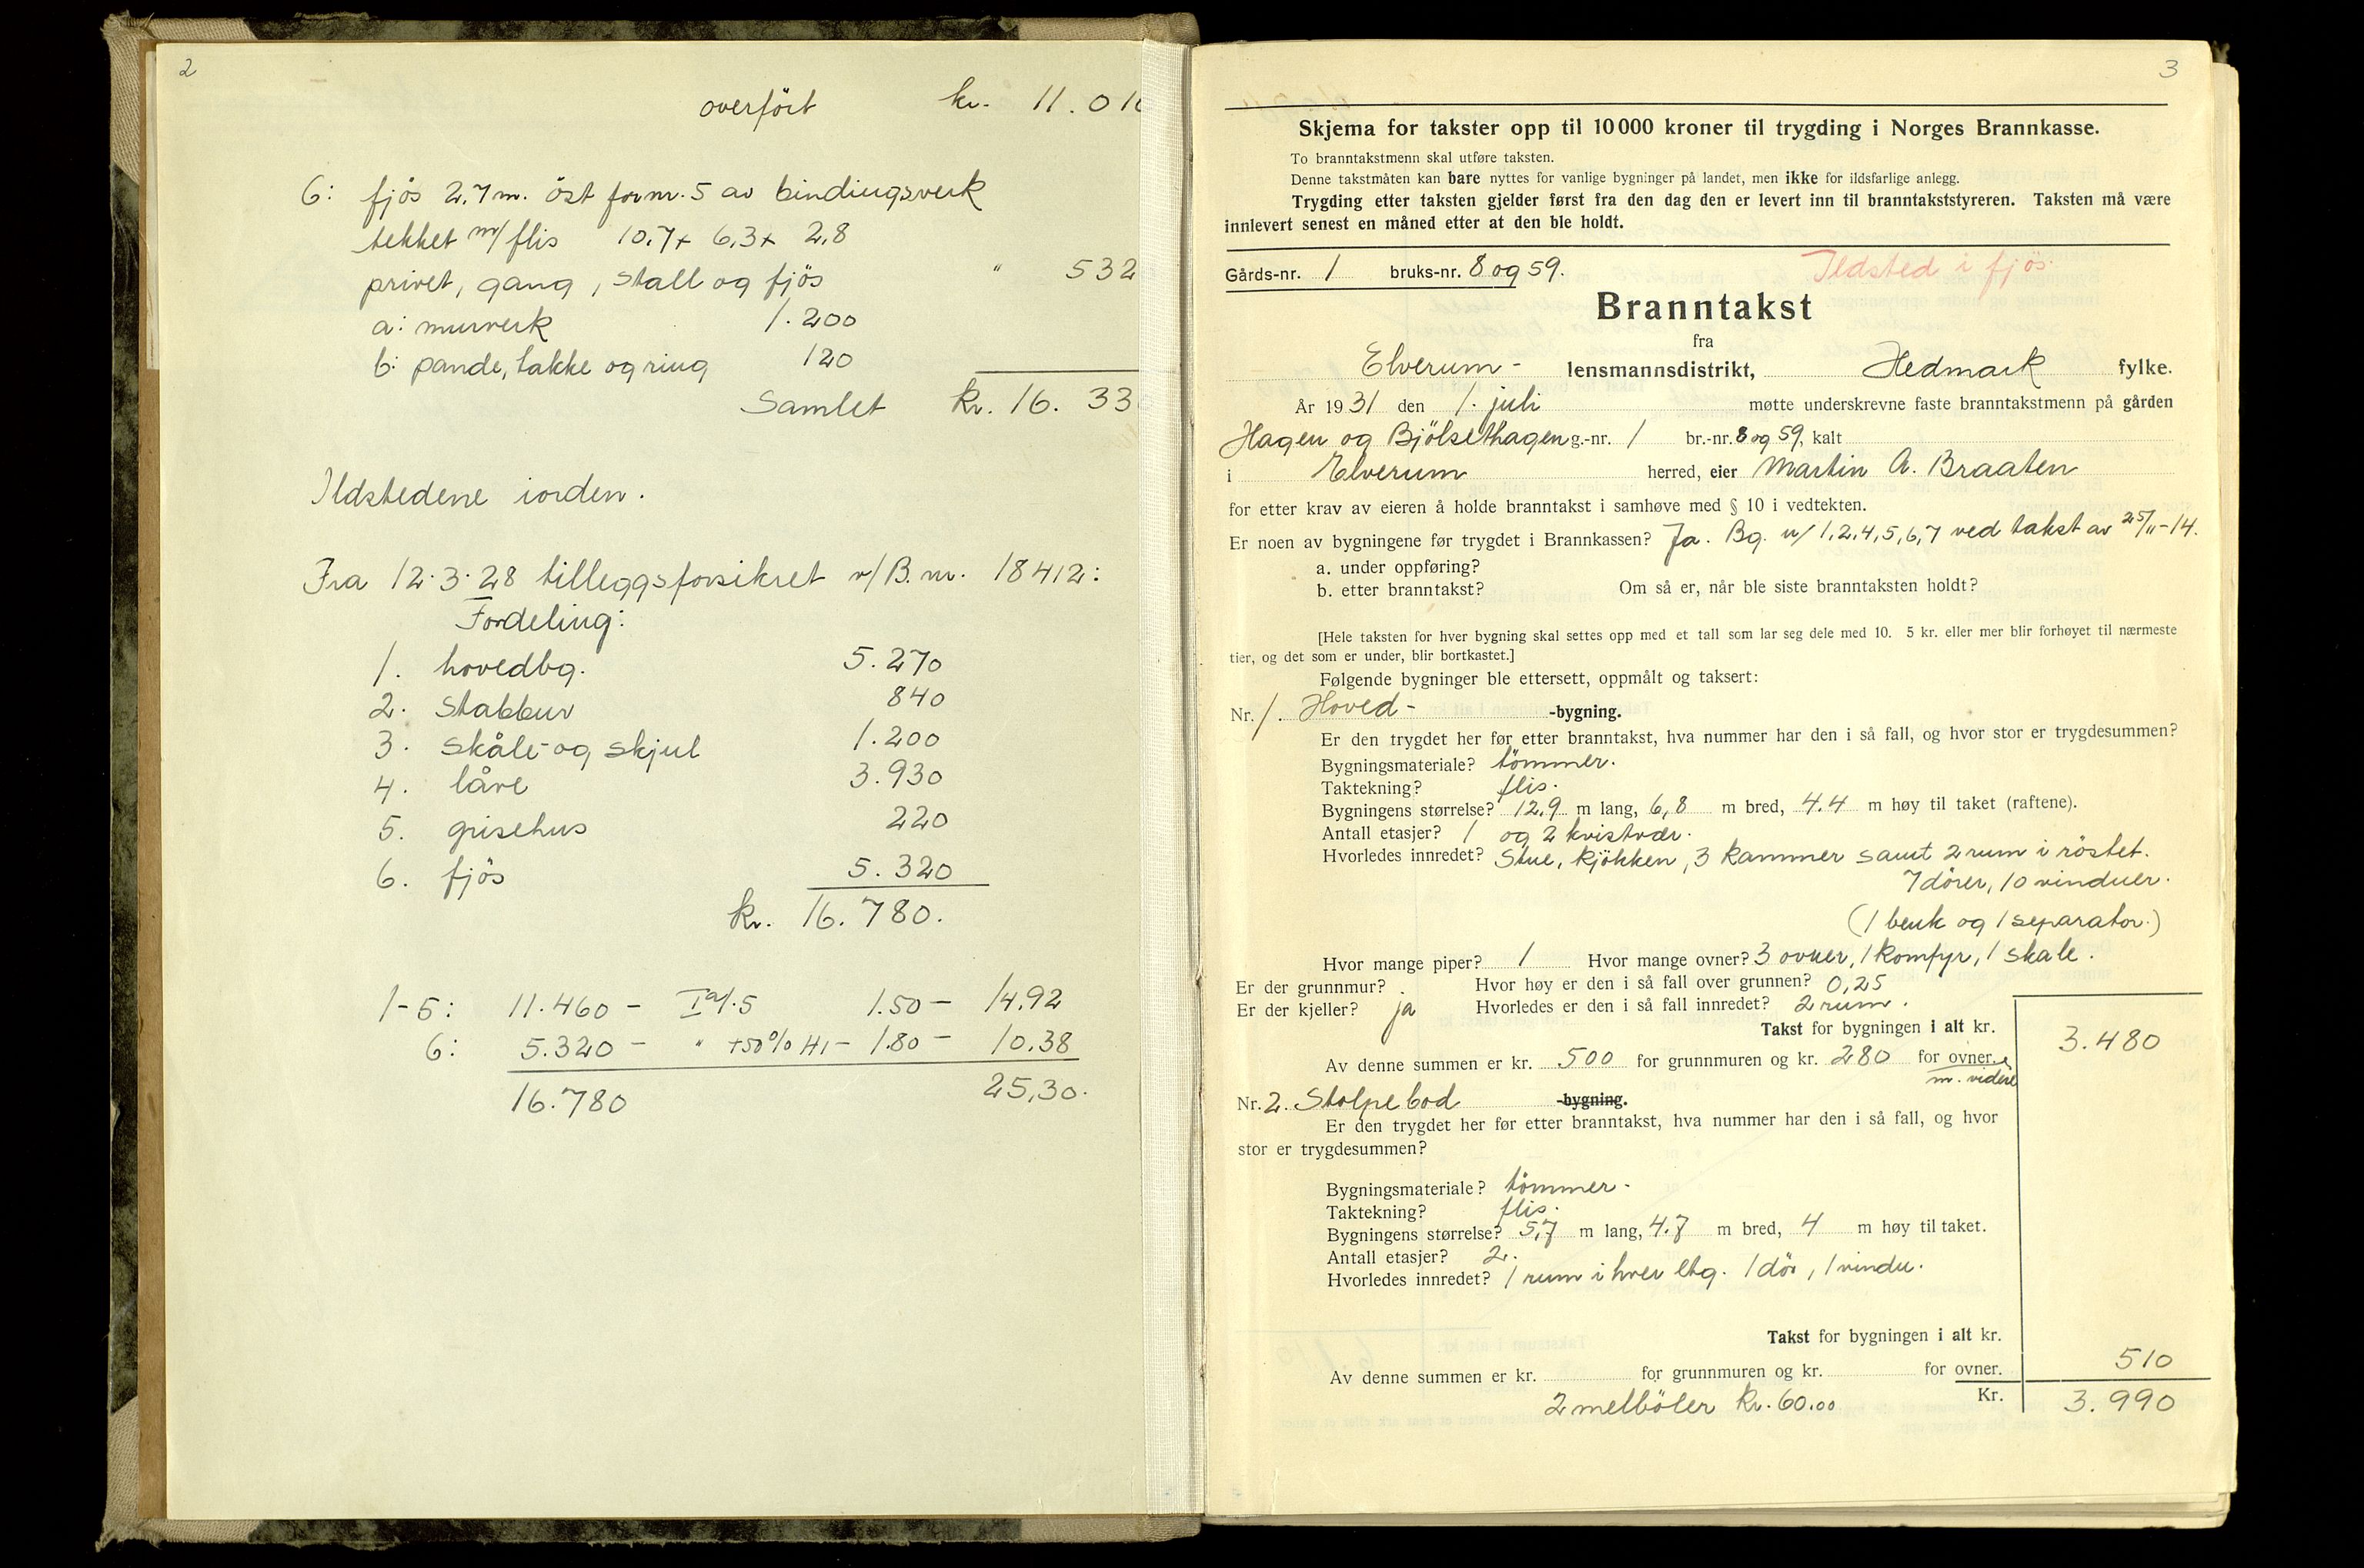 2
overført kr. 11.01
6: fjös 2,7 m. öst for nr. 5 av bindingsverk
tekket m/ flis 10,7 + 6,3 + 2,8
privet, gang, stall og fjös " 532
a: murverk 1.200
b: pande, takke og ring 120
Samlet kr. 16.33
Ildstedene iorden.
Fra 12.3.28 tilleggsforsikret v/ B.nr. 18412:
Fordeling:
1. hovedbg. 5.270
2. stabbur 840
3. skåle- og skjul 1.200
4. låve 3.930
5. grisehus 220
6. fjös 5.320
kr. 16.780.
1-5: 11.460 - I a/.5 1.50 - 14.92
6: 5.320 - " +50% H1 - 1.80 - 10.38
16.780 25,30.
3
Skjema for takster opp til 10000 kroner til trygding i Norges Brannkasse.
To branntakstmenn skal utføre taksten.
Denne takstmåten kan bare nyttes for vanlige bygninger på landet, men ikke for ildsfarlige anlegg.
Trygding etter taksten gjelder først fra den dag den er levert inn til branntakststyreren. Taksten må være
innlevert senest en måned etter at den ble holdt.
Gårds-nr. 1 bruks-nr. 8 og 59. Ildsted i fjös.
Branntakst
fra
Elverum- lensmannsdistrikt, Hedmark fylke.
År 1931 den 1. juli møtte underskrevne faste branntakstmenn på gården
Hagen og Bjölsethagen g.-nr. 1 br.-nr. 8 og 59, kalt
i Elverum herred, eier Martin A. Braaten
for etter krav av eieren å holde branntakst i samhøve med § 10 i vedtekten.
Er noen av bygningene før trygdet i Brannkassen? Ja. Bg. n/ 1,2,4,5,6,7 ved takst av 25/11-14.
a. under oppføring?
b. etter branntakst? Om så er, når ble siste branntaksten holdt?
[Hele taksten for hver bygning skal settes opp med et tall som lar seg dele med 10. 5 kr. eller mer blir forhøyet til nærmeste
tier, og det som er under, blir bortkastet.]
Følgende bygninger ble ettersett, oppmålt og taksert:
Nr. 1. Hoved- -bygning.
Er den trygdet her før etter branntakst, hva nummer har den i så fall, og hvor stor er trygdesummen?
Bygningsmateriale? tömmer.
Taktekning? flis.
Bygningens størrelse? 12,9 m lang, 6,8 m bred, 4.4 m høy til taket (raftene).
Antall etasjer? 1 og 2 kvistvær.
Hvorledes innredet? Stue, kjökken, 3 kammer samt 2 rum i röstet.
7 dörer, 10 vinduer.
(1 benk og 1 separator.)
Hvor mange piper? 1 Hvor mange ovner? 3 ovner, 1 komfyr, 1 skale.
Er der grunnmur? Hvor høy er den i så fall over grunnen? 0,25
Er der kjeller? ja Hvorledes er den i så fall innredet? 2 rum.
Takst for bygningen i alt kr. 3.480
Av denne summen er kr. 500 for grunnmuren og kr. 280 for ovner.
m. videre
Nr. 2. Stolpebod -bygning.
Er den trygdet her før etter branntakst, hva nummer har den i så fall, og hvor
stor er trygdesummen?
Bygningsmateriale? tömmer.
Taktekning? flis.
Bygningens størrelse? 5,7 m lang, 4.7 m bred, 4 m høy til taket.
Antall etasjer? 2.
Hvorledes innredet? 1 rum i hver etg. 1 dör, 1 vindu.
Takst for bygningen i alt kr. 510
Av denne summen er kr. for grunnmuren og kr. for ovner.
2 melböler kr. 60.00 Kr. 3.990